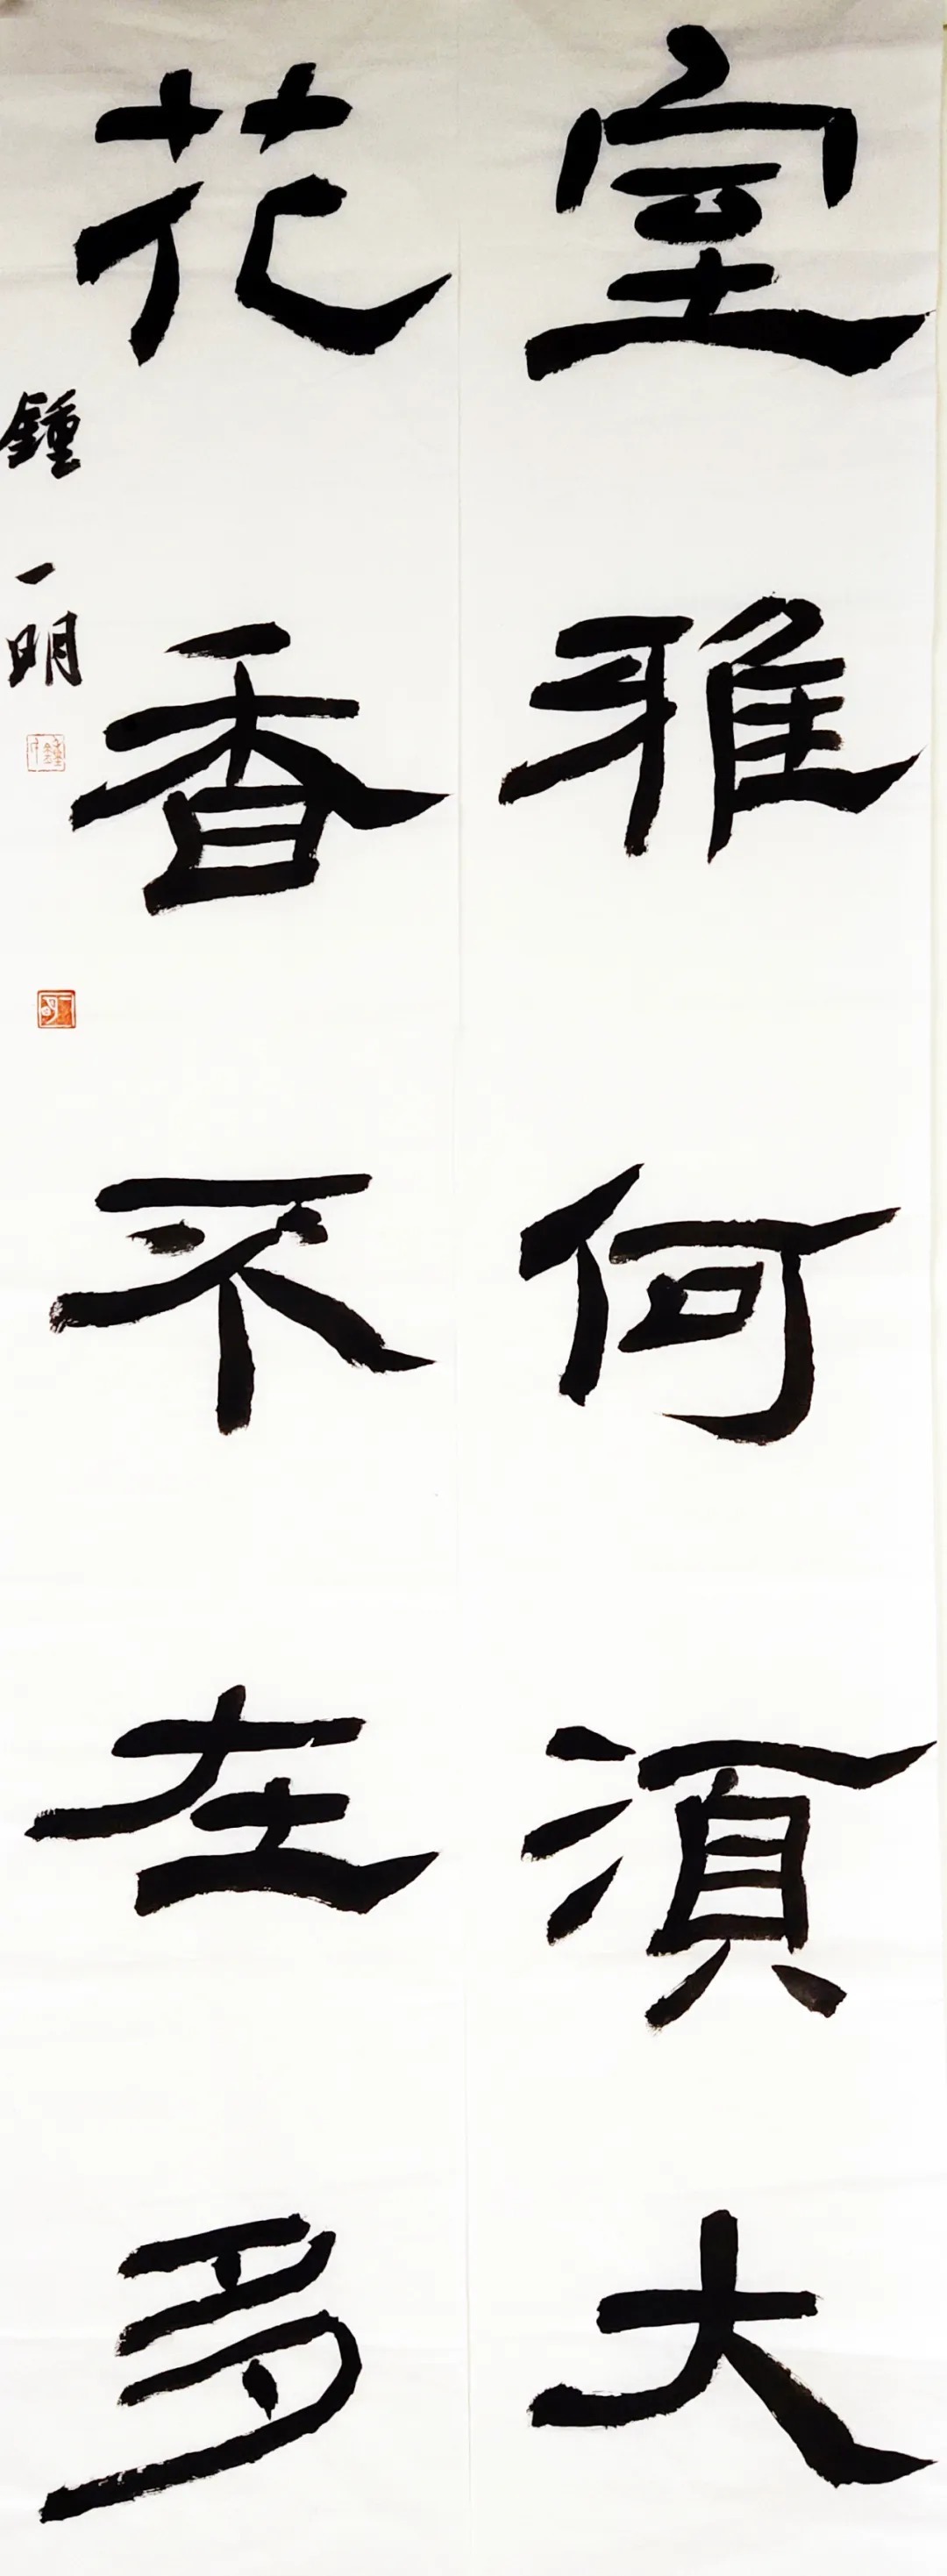 室雅何須大
花香不在多
鍾一明